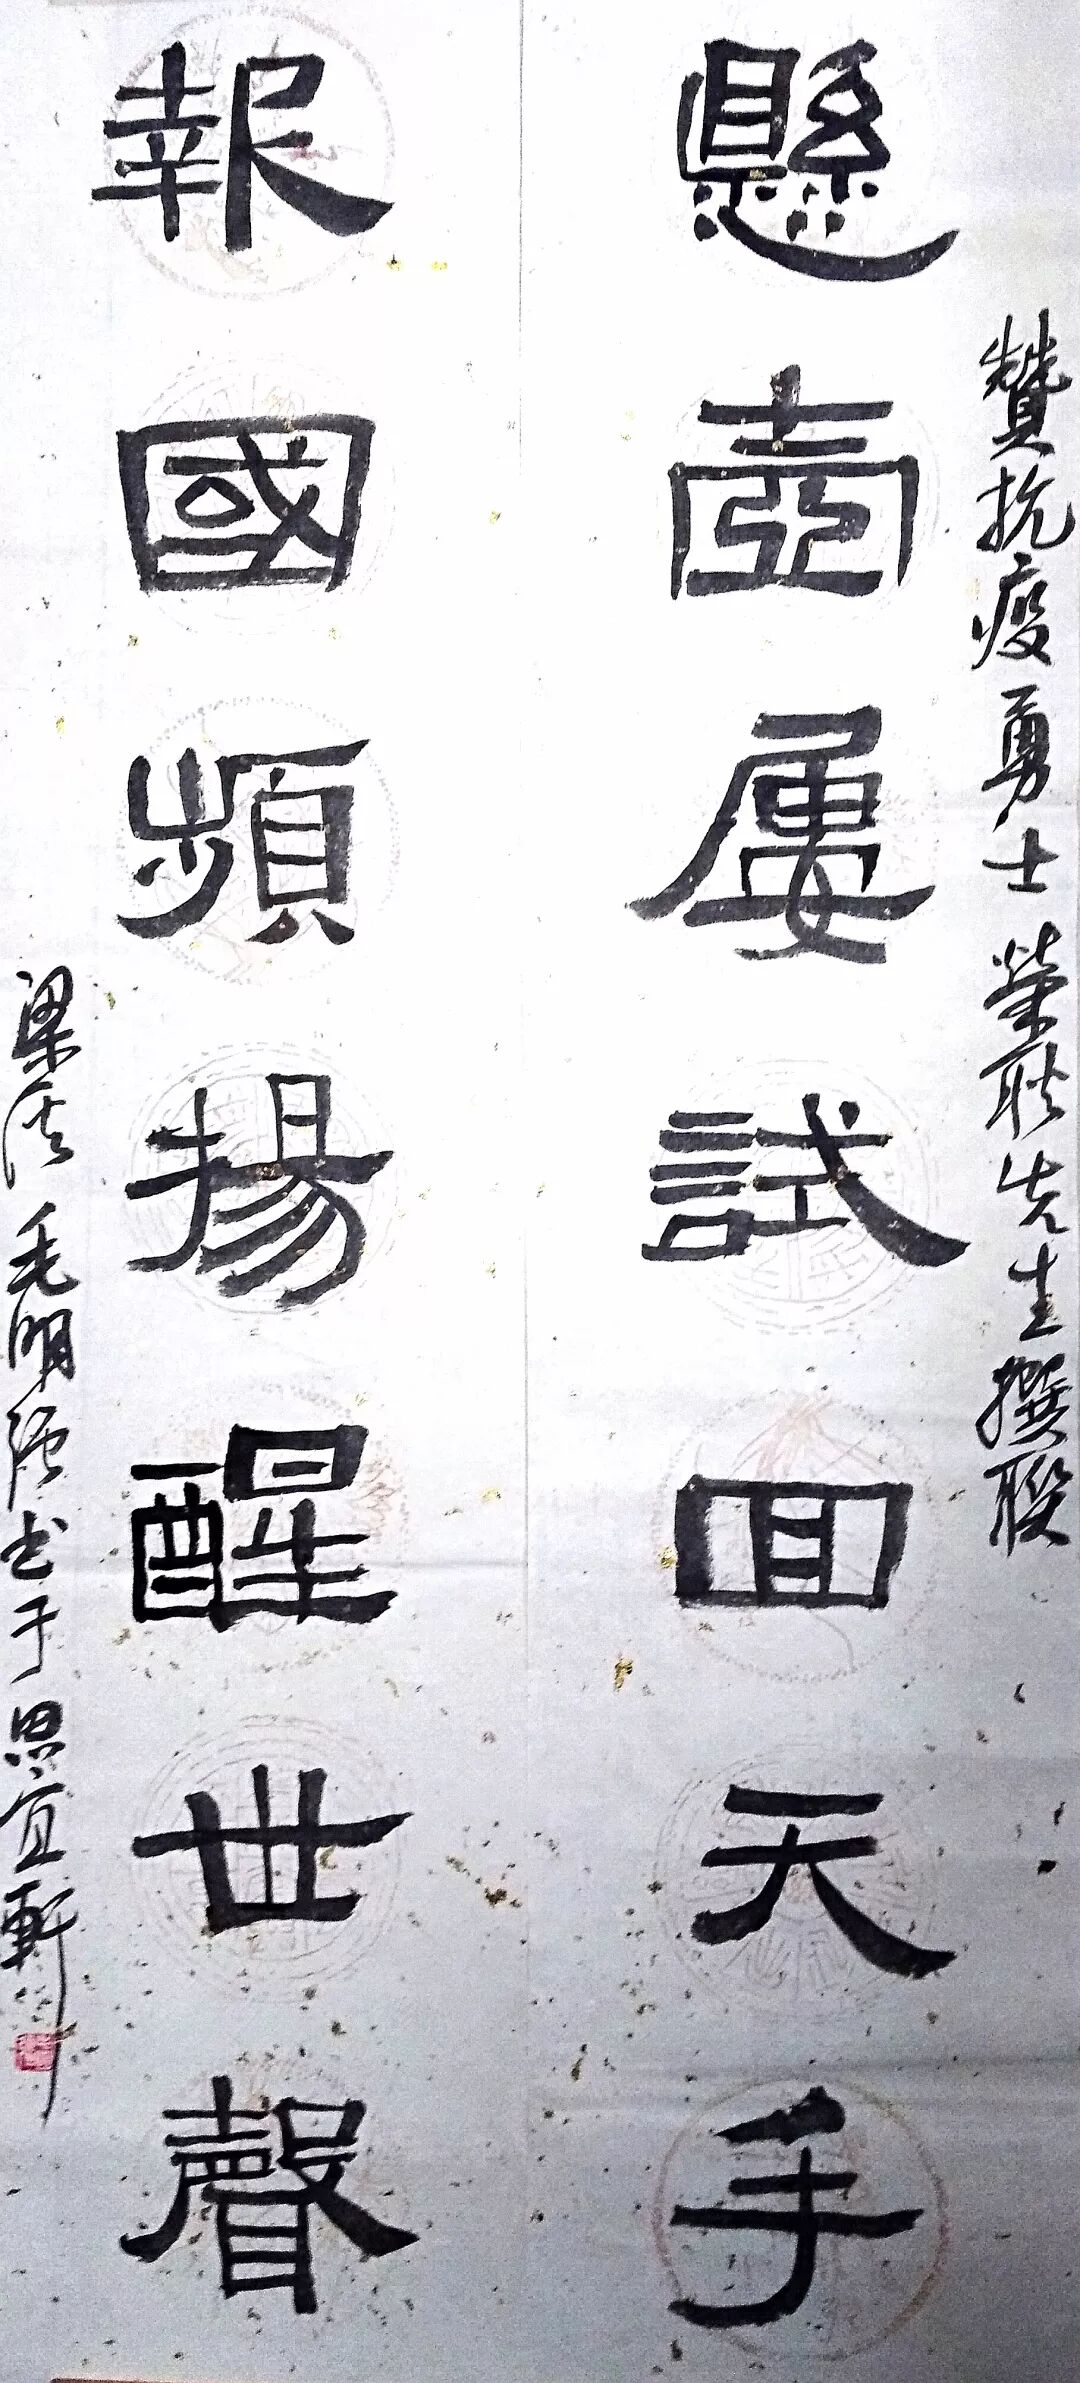 贊抗疫勇士 榮耿先生撰联
懸壺屢試囬天手
報國頻揚醒世聲
梁溪毛明强书于思宜軒